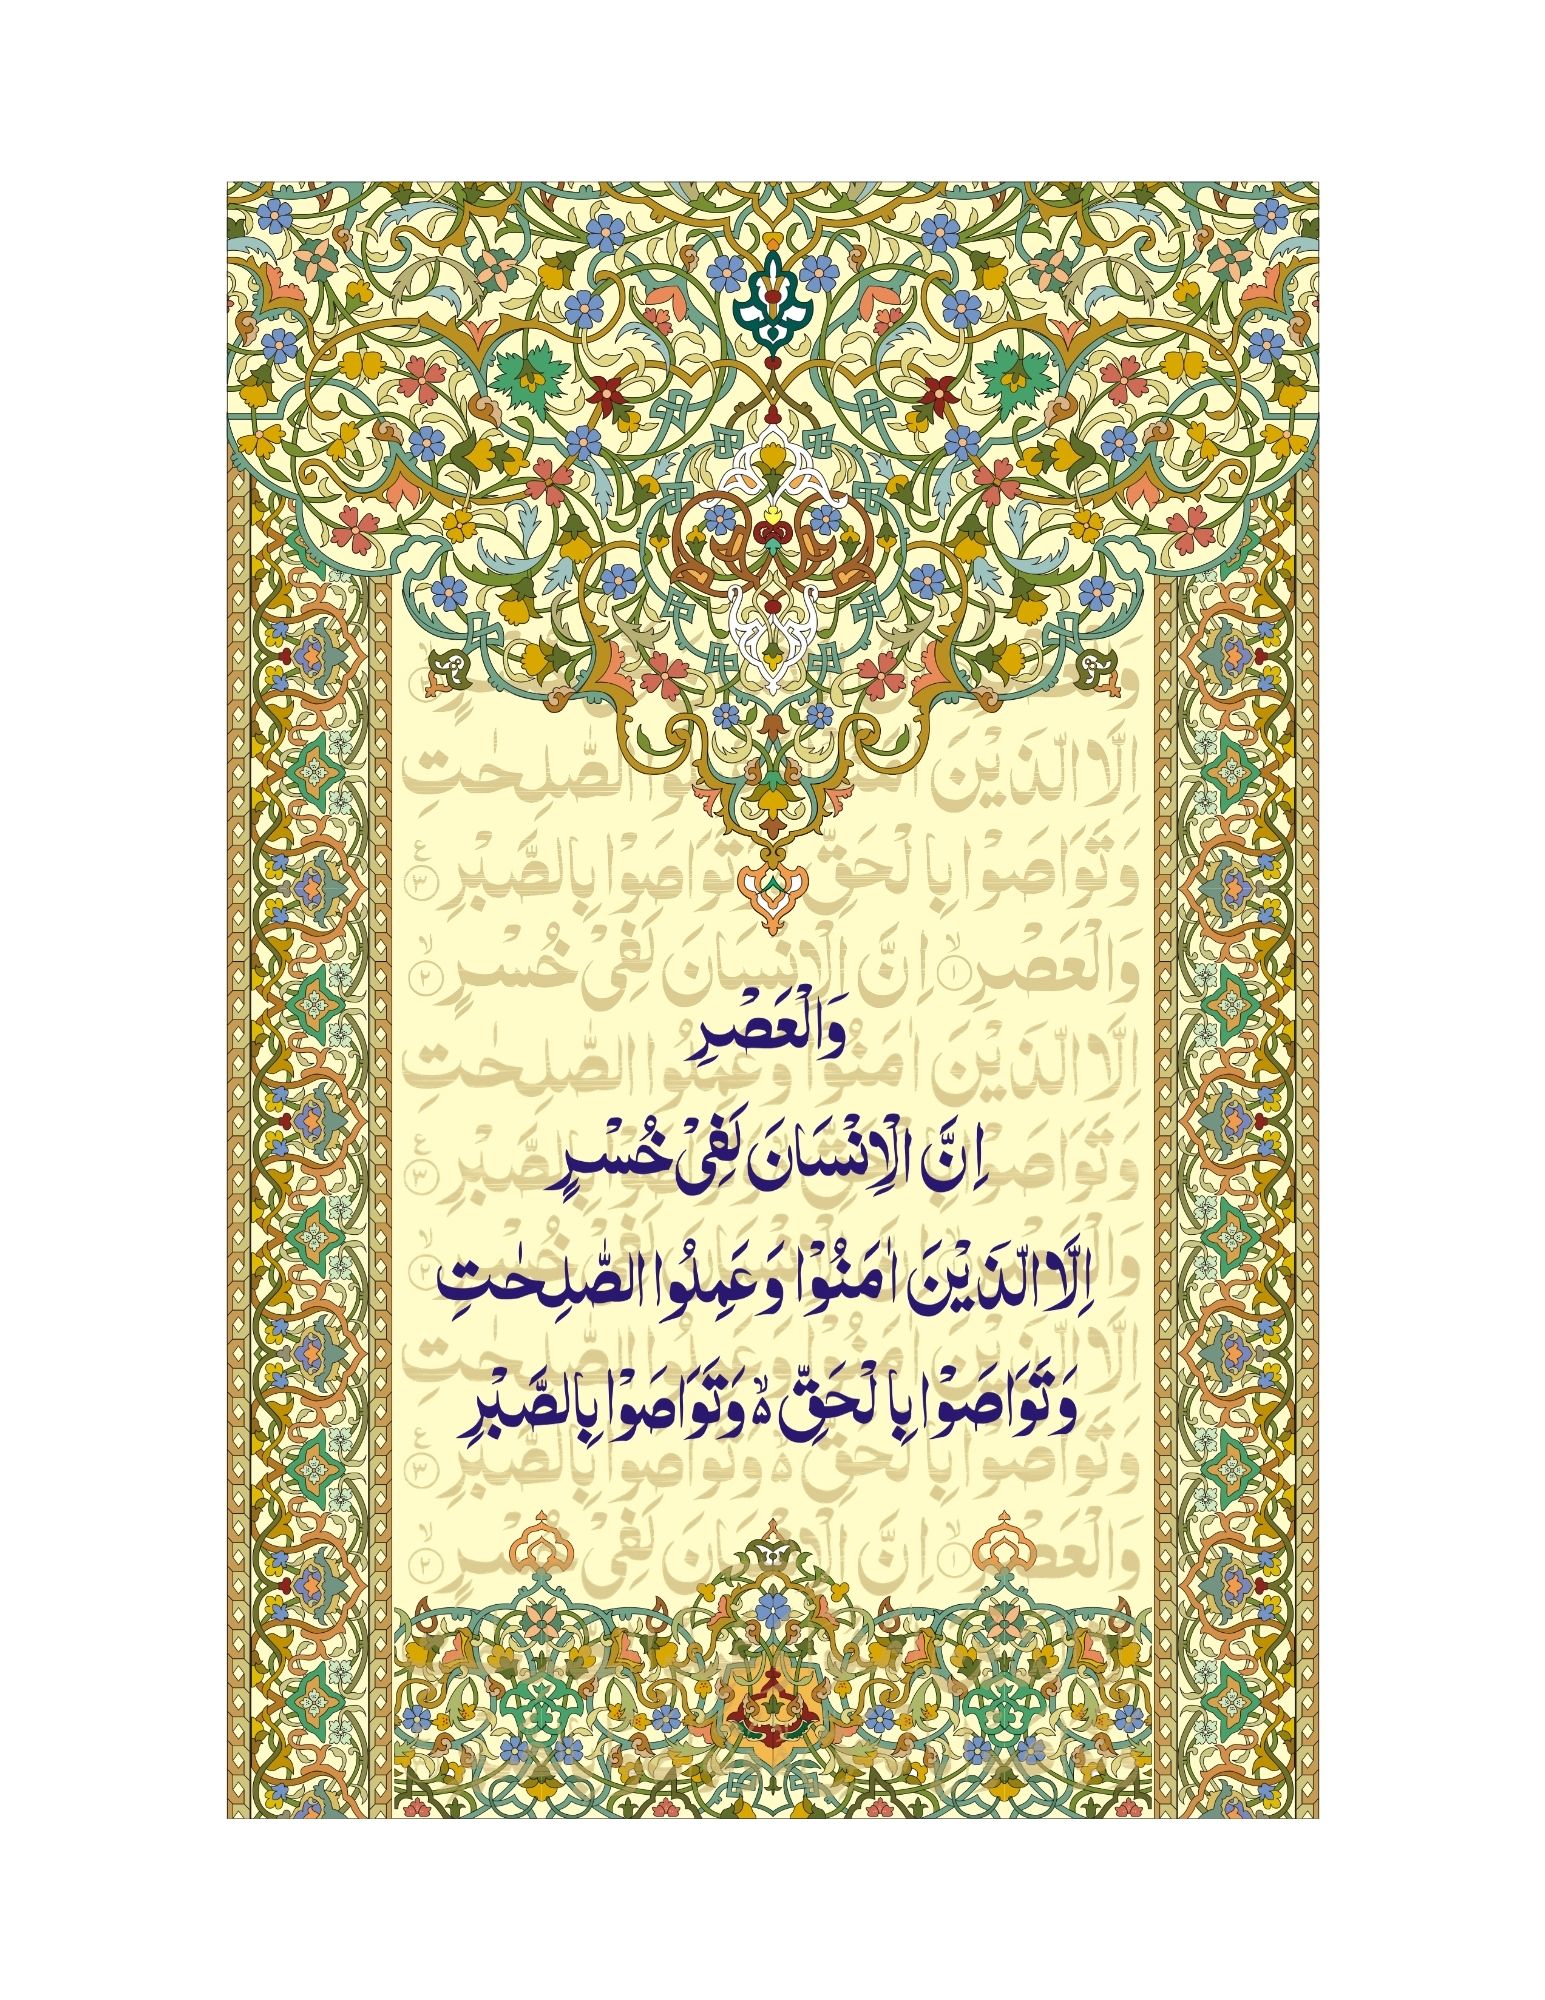 وَالْعَصْرِ
اِنَّ الْاِنْسَانَ لَفِیْ خُسْرٍ
اِلَّا الَّذِیْنَ اٰمَنُوْا وَعَمِلُوا الصّٰلِحٰتِ
وَتَوَاصَوْا بِالْحَقِّ ۙ۬ وَتَوَاصَوْا بِالصَّبْرِ